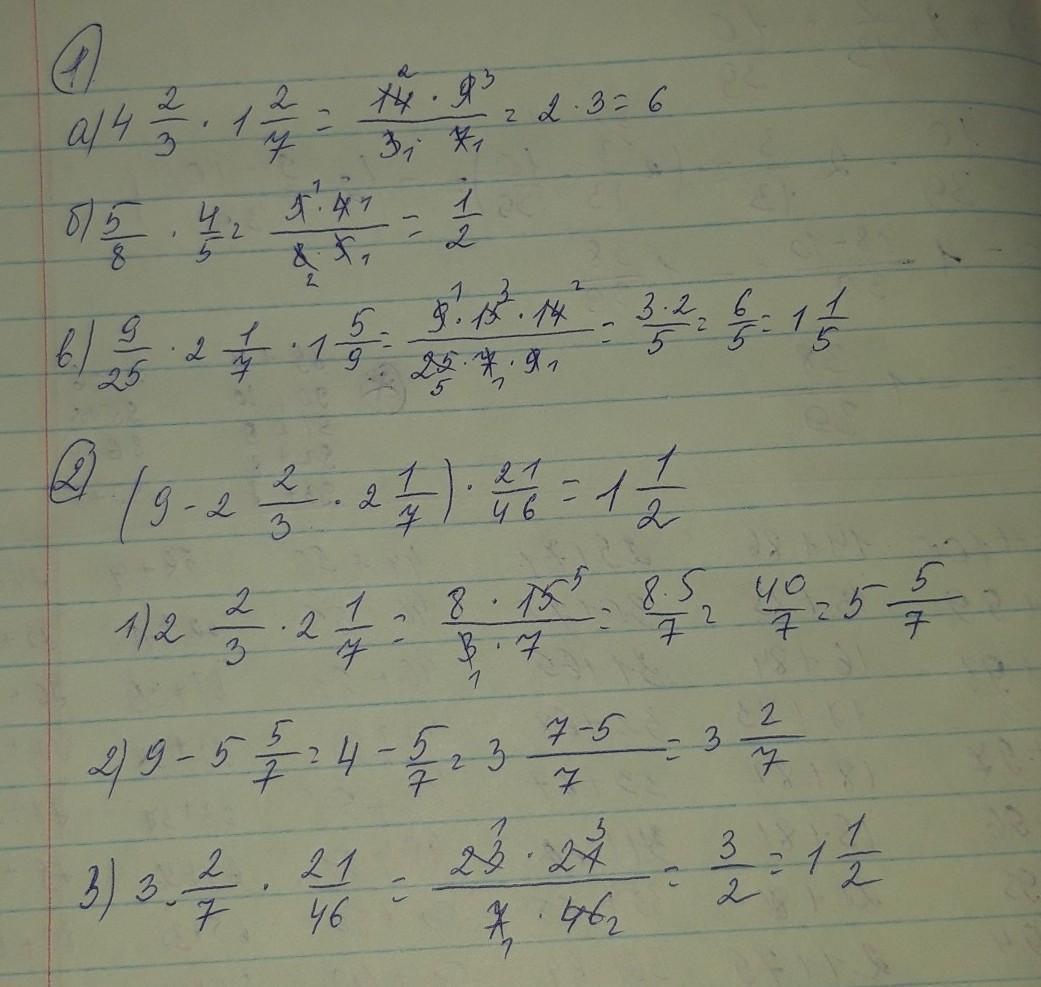 1
а) 4 2/3 · 1 2/7 = 14 2 · 9 3 / 3 1 · 7 1 = 2 · 3 = 6
б) 5/8 · 4/5 = 5 1 · 4 1 / 8 2 · 5 1 = 1/2
в) 9/25 · 2 1/7 · 1 5/9 = 9 1 · 15 3 · 14 2 / 25 5 · 7 1 · 9 1 = 3·2/5 = 6/5 = 1 1/5
2 (9 - 2 2/3 · 2 1/7) · 21/46 = 1 1/2
1) 2 2/3 · 2 1/7 = 8 · 15 5 / 3 1 · 7 = 8·5/7 = 40/7 = 5 5/7
2) 9 - 5 5/7 = 4 - 5/7 = 3 7-5/7 = 3 2/7
3) 3 2/7 · 21/46 = 23 1 · 21 3 / 7 1 · 46 2 = 3/2 = 1 1/2